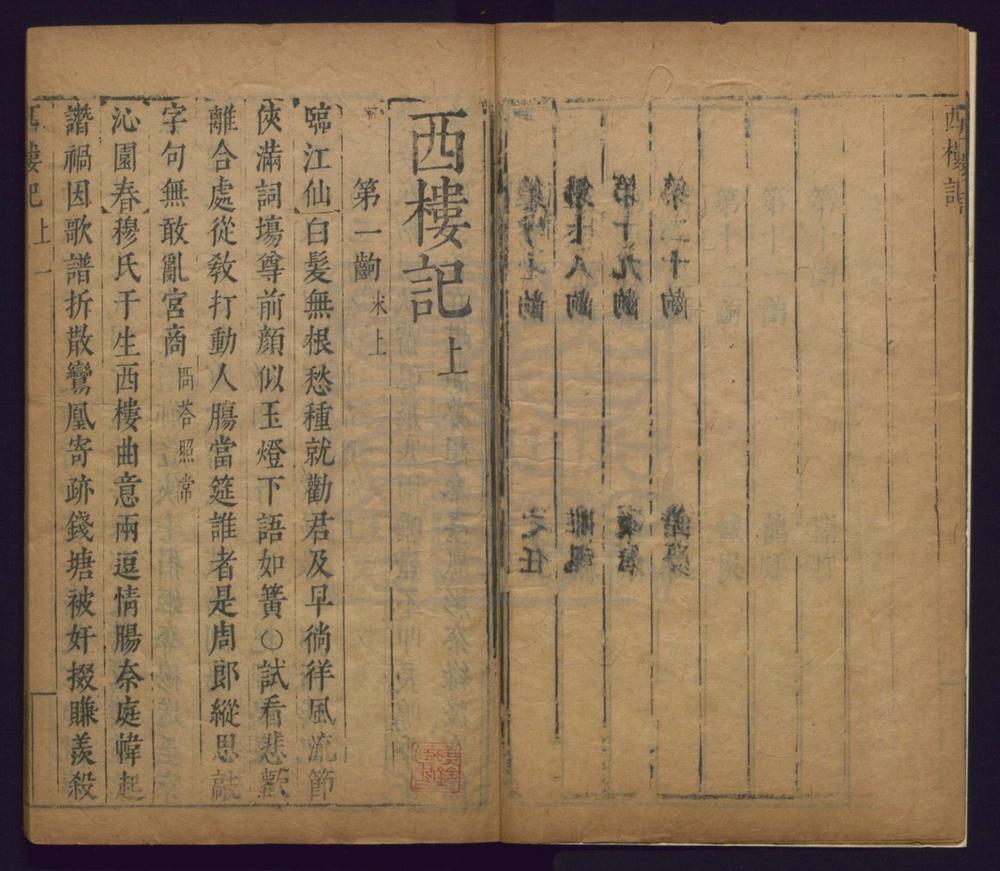 西樓記
西樓記上
第一齣 末上
臨江仙白髮無根愁種就勸君及早徜徉風流節
俠滿詞塲尊前顏似玉燈下語如簧○試看悲歡
離合處從敎打動人膓當筵誰者是周郎縱思敲
字句無敢亂宮商 問荅照常
沁園春穆氏于生西樓曲意兩逗情腸奈庭幃起
譖禍因歌譜拆散鸞凰寄跡錢塘被奸掇賺羨殺
西樓記 上 一